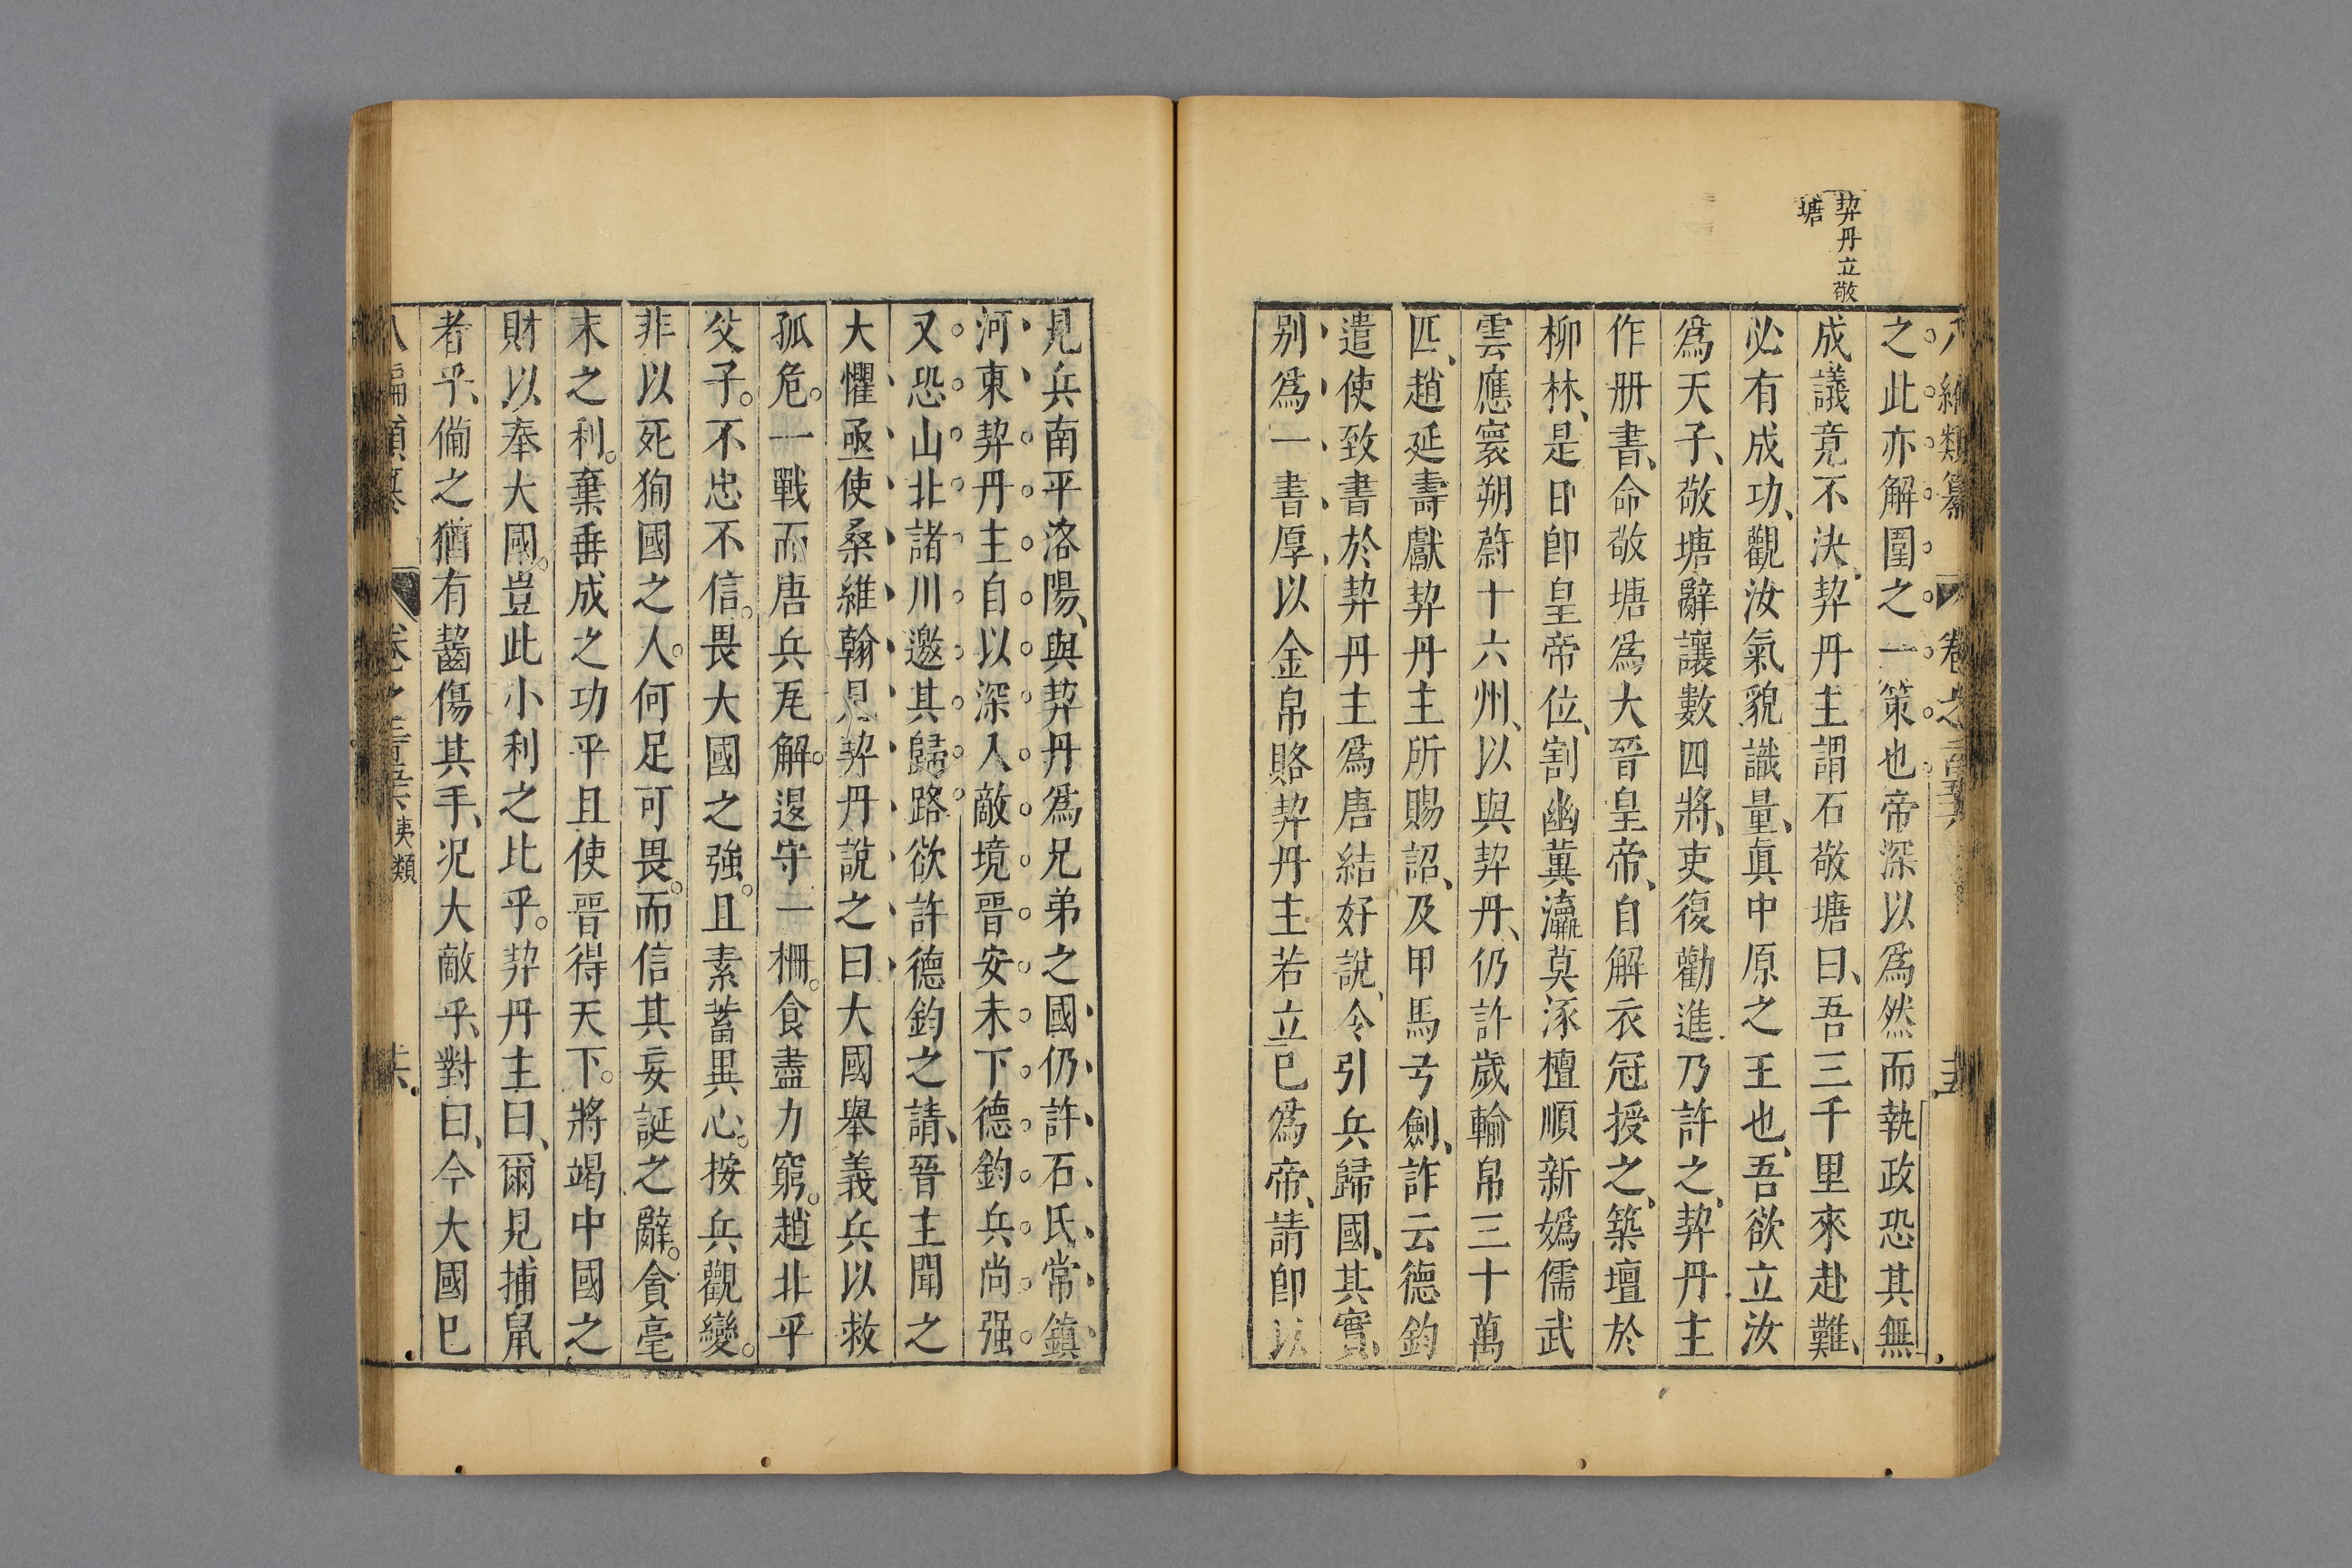 契丹立敬
塘
之此亦解圍之一策也帝深以爲然而執政恐其無
成議竟不決契丹主謂石敬塘曰吾三千里來赴難
必有成功觀汝氣貌識量眞中原之王也吾欲立汝
爲天子敬塘辭讓數四將吏復勸進乃許之契丹主
作册書命敬塘爲大晉皇帝自解衣冠授之築壇於
柳林是日卽皇帝位割幽薊瀛莫涿檀順新嬀儒武
雲應寰朔蔚十六州以與契丹仍許歲輸帛三十萬
匹趙延壽獻契丹主所賜詔及甲馬弓劍詐云德鈞
遣使致書於契丹主爲唐結好說令引兵歸國其實
别爲一書厚以金帛賂契丹主若立巳爲帝請卽以
見兵南平洛陽與契丹爲兄弟之國仍許石氏常鎮
河東契丹主自以深入敵境晉安未下德鈞兵尚强
又恐山北諸川邀其歸路欲許德鈞之請晉主聞之
大懼亟使桑維翰見契丹說之曰大國舉義兵以救
孤危一戰而唐兵瓦解退守一柵食盡力窮趙北平
父子不忠不信畏大國之強且素蓄異心按兵觀變
非以死狥國之人何足可畏而信其妄誕之辭貪毫
末之利棄垂成之功乎且使晉得天下將竭中國之
財以奉大國豈此小利之比乎契丹主曰爾見捕鼠
者乎備之猶有齧傷其手況大敵乎對曰今大國巳